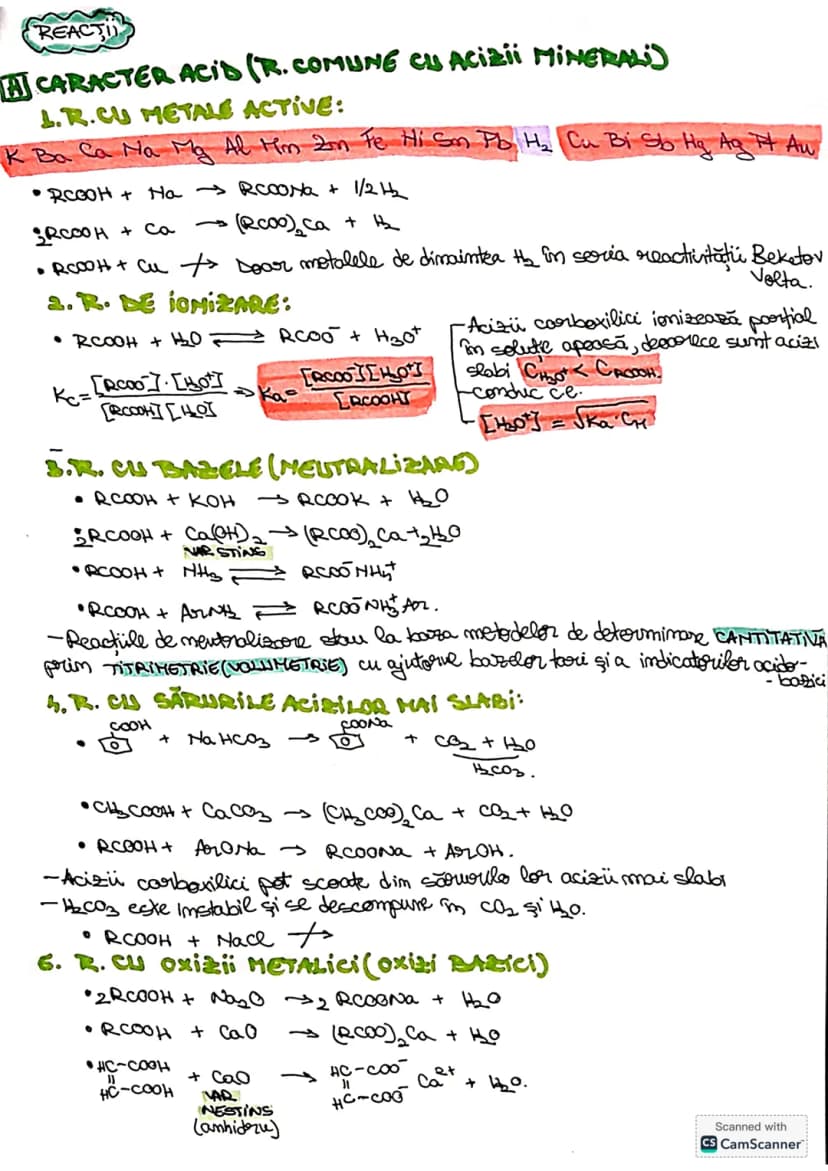 REACȚII
A CARACTER ACID (R. COMUNE CU ACIZII MINERALI)
1. R. CU METALE ACTIVE:
K Ba Ca Na Mg Al Mn Zn Fe Ni Sn Pb H₂ Cu Bi Sb Hg Ag Pt Au
• RCOOH + Na → RCOONa + 1/2 H₂
2RCOOH + Ca → (RCOO)₂Ca + H₂
• RCOOH + Cu ↛ Doar metalele de dinaintea H₂ în seria reactivității Beketov
Volta.
2. R. DE IONIZARE:
• RCOOH + H₂O ⇌ RCOO⁻ + H₃O⁺
Kc = [RCOO⁻]·[H₃O⁺] / [RCOOH][H₂O] ⇒ Ka = [RCOO⁻][H₃O⁺] / [RCOOH]
- Acizii carboxilici ionizează parțial
în soluție apoasă, deoarece sunt acizi
slabi C H₃O⁺ < C RCOOH.
- conduc c.e.
- [H₃O⁺] = √Ka·CM
3. R. CU BAZELE (NEUTRALIZARE)
• RCOOH + KOH → RCOOK + H₂O
2RCOOH + Ca(OH)₂ → (RCOO)₂Ca + 2H₂O
VAR STINS
• RCOOH + NH₃ ⇌ RCOO⁻NH₄⁺
• RCOOH + ArNH₂ ⇌ RCOO⁻NH₃⁺Ar.
- Reacțiile de neutralizare stau la baza metodelor de determinare CANTITATIVĂ
prin TITRIMETRIE (VOLUMETRIE) cu ajutorul bazelor tari și a indicatorilor acido-
- bazici
4. R. CU SĂRURILE ACIZILOR MAI SLABI:
COOH COONa
• + NaHCO₃ → + CO₂ + H₂O
H₂CO₃.
• CH₃COOH + CaCO₃ → (CH₃COO)₂Ca + CO₂ + H₂O
• RCOOH + ArONa → RCOONa + ArOH.
- Acizii carboxilici pot scoate din sărurile lor acizii mai slabi
- H₂CO₃ este instabil și se descompune în CO₂ și H₂O.
• RCOOH + NaCl ↛
6. R. CU OXIZII METALICI (OXIZI BAZICI)
• 2RCOOH + Na₂O → 2 RCOONa + H₂O
• RCOOH + CaO → (RCOO)₂Ca + H₂O
• HC-COOH HC-COO⁻
|| + CaO → || Ca²⁺ + H₂O.
HC-COOH HC-COO⁻
VAR
NESTINS
(anhidru)
Scanned with
CS CamScanner